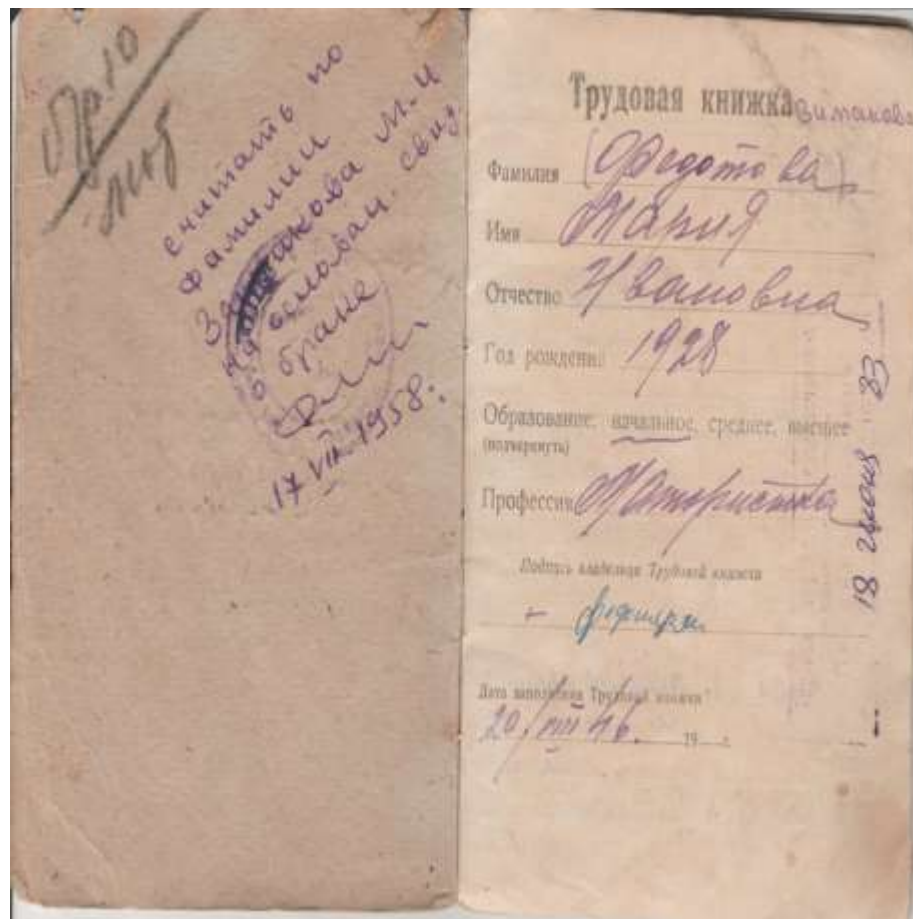 считать по
фамилии
М.И
на основан. свид
о браке
17 VII 1958.
Трудовая книжка
Фамилия (Федотова)
Имя Мария
Отчество Ивановна
Год рождения 1928
Образование: начальное, среднее, высшее
(подчеркнуть)
Профессия
Подпись владельца Трудовой книжки
Дата заполнения Трудовой книжки
20/VIII 46. 19
18 июня 33